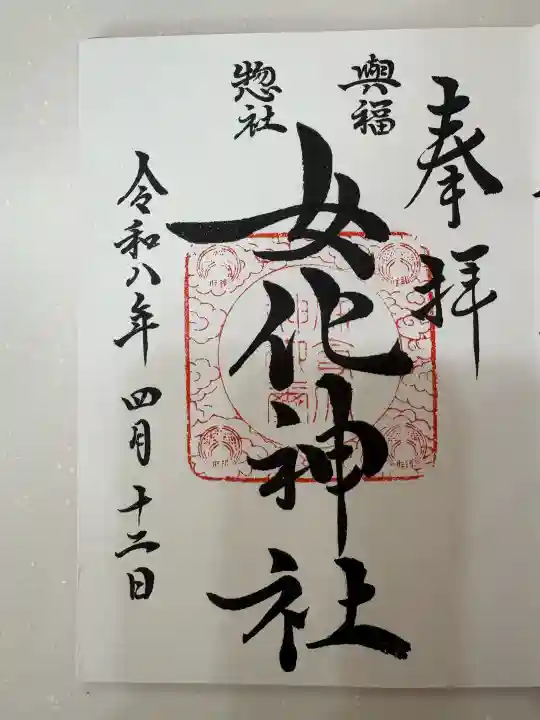 奉拝
興福
女化神社
惣社
令和八年四月十二日